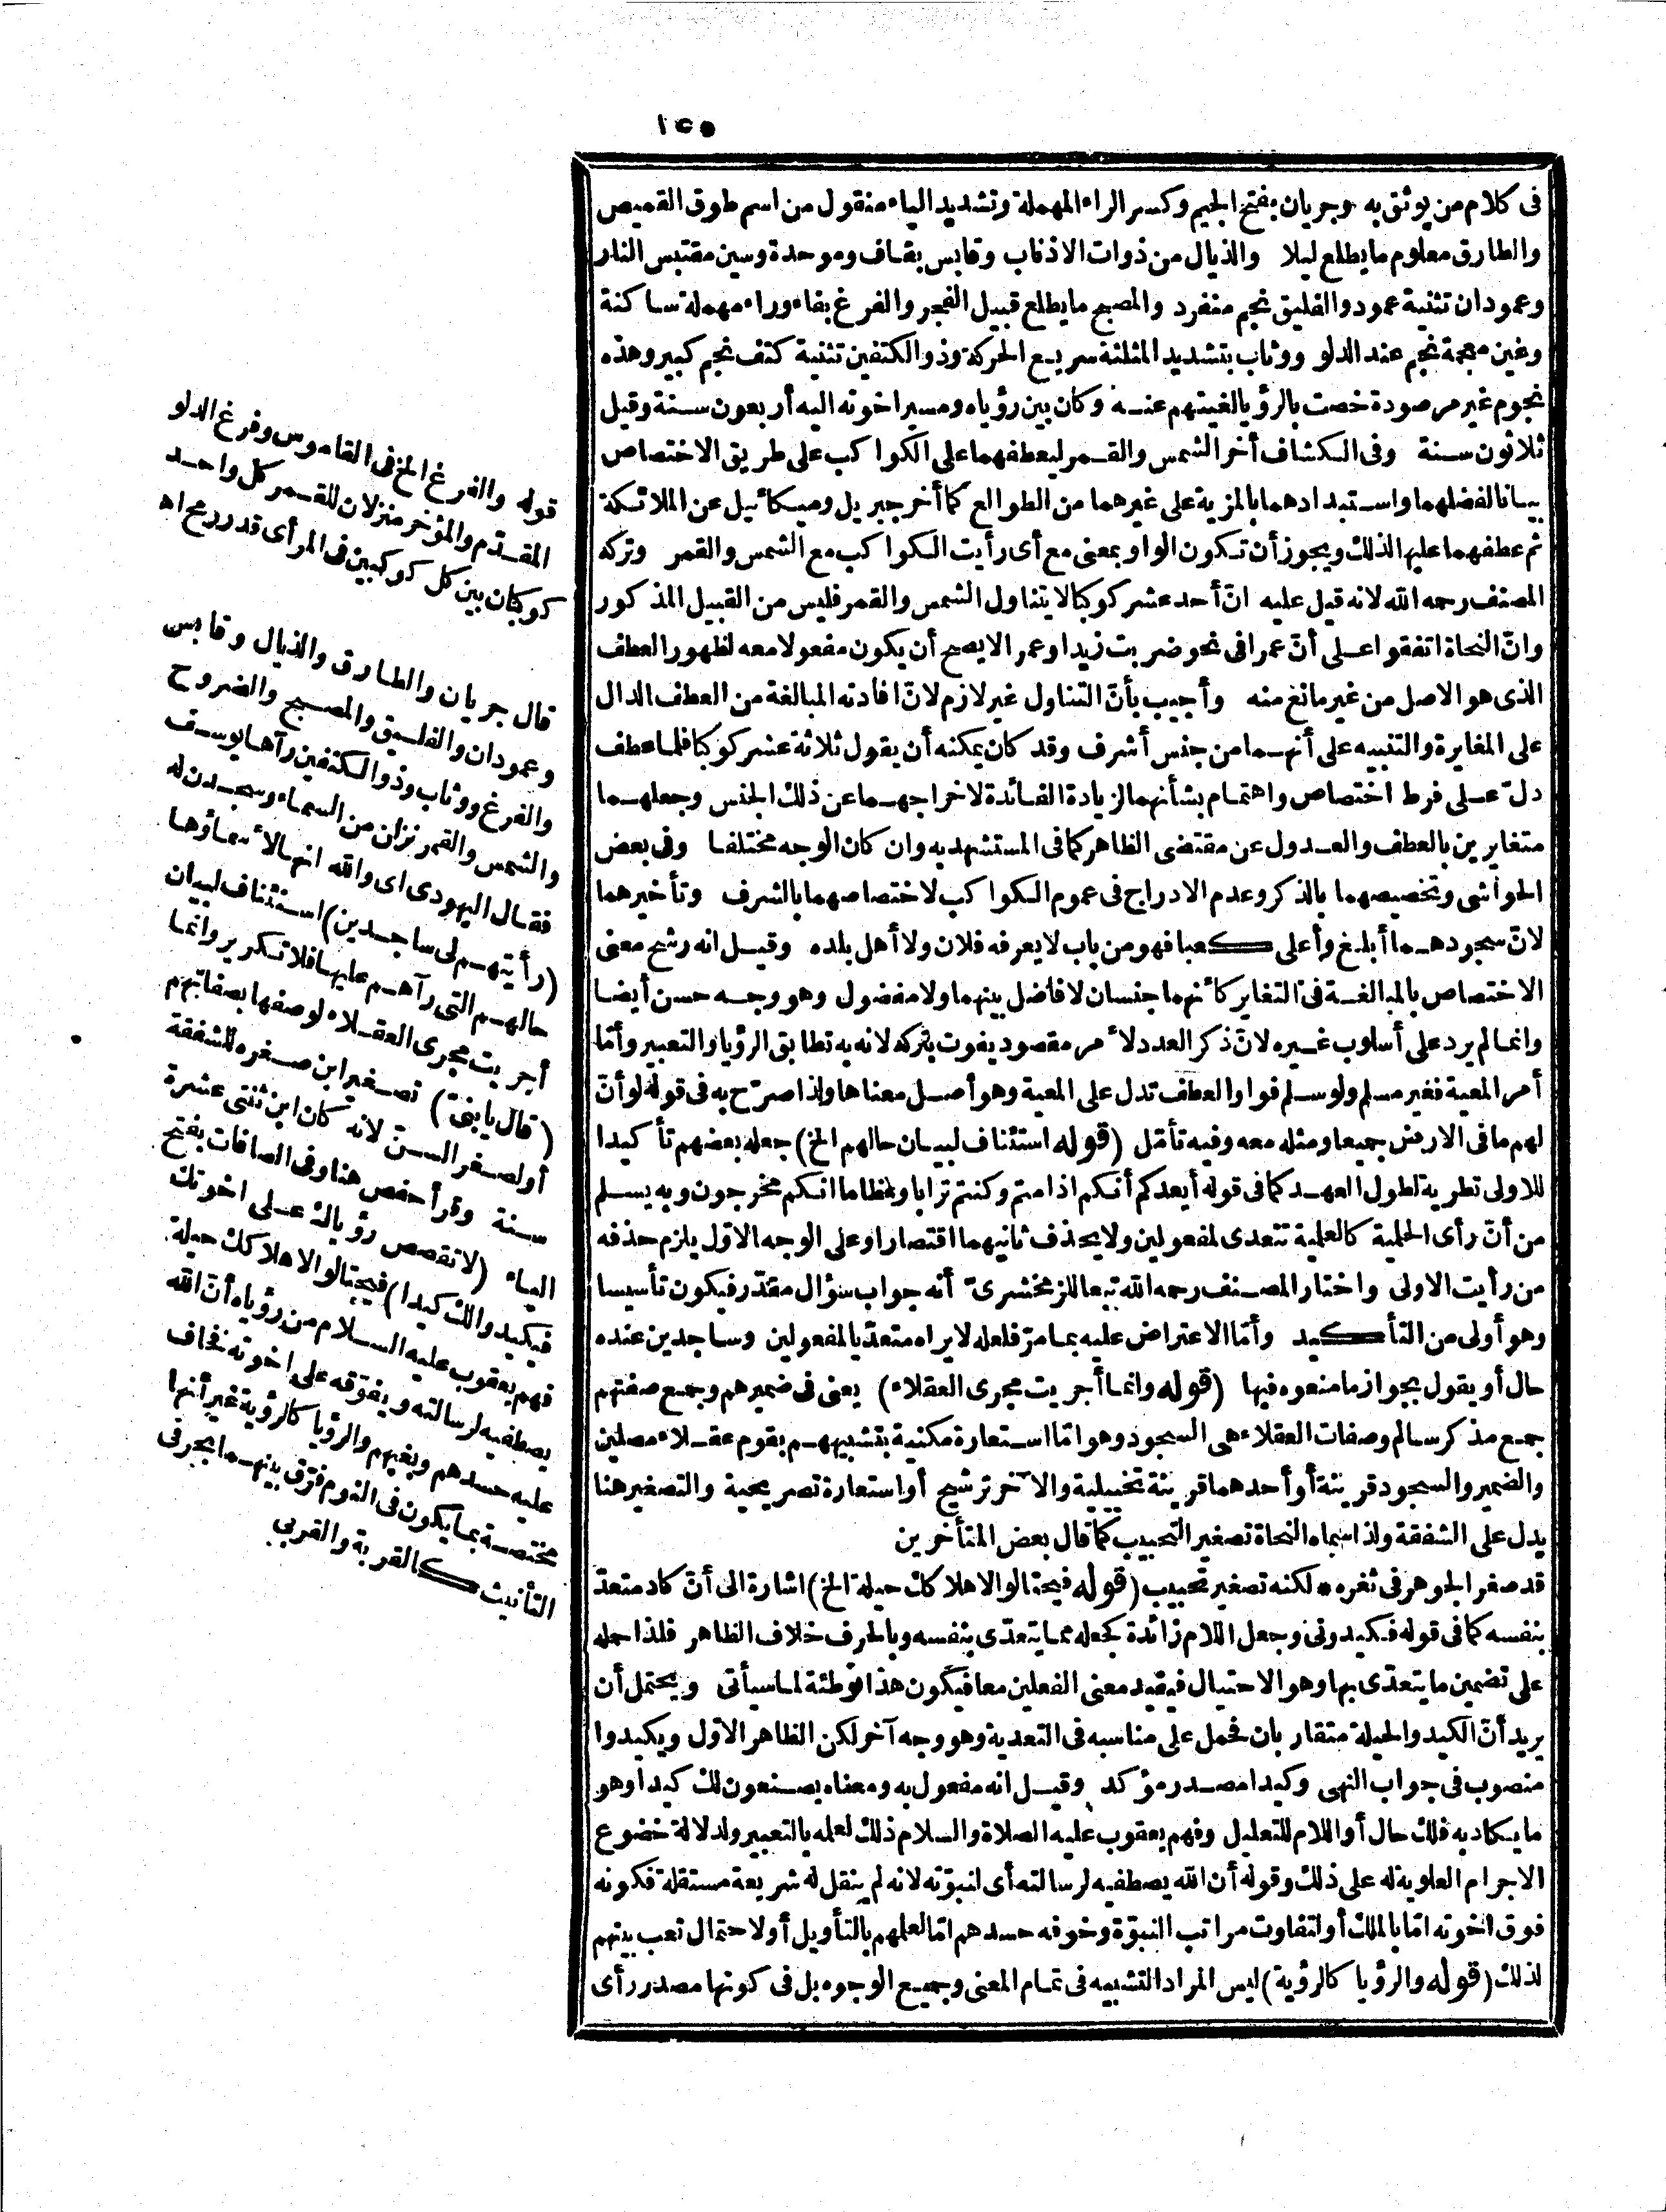 ١٥٥
فى كلام من يوثق به وجريان بفتح الجيم وكسر الراء المهملة وتشديد الياء منقول من اسم طوق القميص
والطارق معلوم ما يطلع ليلا والذيال من ذوات الاذناب وقابس بقاف وموحدة وسين مقتبس النار
وعمودان تثنية عمود والفليق نجم منفرد والمصبح ما يطلع قبيل الفجر والفرغ بفاء وراء مهملة ساكنة
وغين معجمة نجم عند الدلو ووثاب بتشديد المثلثة سريع الحركة وذو الكتفين تثنية كتف نجم كبير وهذه
نجوم غير مرصودة خصت بالرؤيا لغيبتهم عنه وكان بين رؤياه ومسير اخوته اليه أربعون سنة وقيل
ثلاثون سنة وفى الكشاف أخر الشمس والقمر ليعطفهما على الكواكب على طريق الاختصاص
بيانا لفضلهما واستبدادهما بالمزية على غيرهما من الطوالع كما أخر جبريل وميكائيل عن الملائكة
ثم عطفهما عليها لذلك ويجوز أن تكون الواو بمعنى مع أى رأيت الكواكب مع الشمس والقمر وتركه
المصنف رحمه الله لانه قيل عليه انّ أحد عشر كوكبا لا يتناول الشمس والقمر فليس من القبيل المذكور
وانّ النحاة اتفقوا على أنّ عمرا فى نحو ضربت زيدا وعمرا لا يصح أن يكون مفعولا معه لظهور العطف
الذى هو الاصل من غير مانع منه وأجيب بأنّ التناول غير لازم لانّ افادته المبالغة من العطف الدال
على المغايرة والتنبيه على أنهما من جنس أشرف وقد كان يمكنه أن يقول ثلاثة عشر كوكبا فلما عطف
دلّ على فرط اختصاص واهتمام بشأنهما لزيادة الفائدة لاخراجهما عن ذلك الجنس وجعلهما
متغايرين بالعطف والعدول عن مقتضى الظاهر كما فى المستشهد به وان كان الوجه مختلفا وفى بعض
الحواشى وتخصيصهما بالذكر وعدم الادراج فى عموم الكواكب لاختصاصهما بالشرف وتأخيرهما
لانّ سجودهما أبلغ وأعلى كعبا فهو من باب لا يعرفه فلان ولا أهل بلده وقيل انه رشح معنى
الاختصاص بالمبالغة فى التغاير كأنهما جنسان لا فاضل بينهما ولا مفضول وهو وجه حسن أيضا
وانما لم يرد على أسلوب غيره لانّ ذكر العدد لأمر مقصود يفوت بتركه لانه به تطابق الرؤيا والتعبير وأمّا
أمر المعية فغير مسلم ولو سلم فواو العطف تدل على المعية وهو أصل معناها ولذا صرّح به فى قوله لو أنّ
لهم ما فى الارض جميعا ومثله معه وفيه تأمّل (قوله استئناف لبيان حالهم الخ) جعله بعضهم تأكيدا
للاولى تطرية لطول العهد كما فى قوله أيعدكم أنكم اذا متم وكنتم ترابا وعظاما انكم مخرجون وبه يسلم
من أنّ رأى الحلمية كالعلمية تتعدى لمفعولين ولا يحذف ثانيهما اقتصارا وعلى الوجه الاوّل يلزم حذفه
من رأيت الاولى واختار المصنف رحمه الله تبعا للزمخشرىّ أنه جواب سؤال مقدّر فيكون تأسيسا
وهو أولى من التأكيد وأمّا الاعتراض عليه بما مرّ فلعله لا يراه متعدّيا لمفعولين وساجدين عنده
حال أو يقول بجواز ما منعوه فيها (قوله وانما أجريت مجرى العقلاء) يعنى فى ضميرهم وجمع صفتهم
جمع مذكر سالم وصفات العقلاء هى السجود وهو امّا استعارة مكنية بتشبيههم بقوم عقلاء مصلين
والضمير والسجود قرينة أو أحدهما قرينة تخييلية والآخر ترشيح أو استعارة تصريحية والتصغير هنا
يدل على الشفقة ولذا سماه النحاة تصغير التحبيب كما قال بعض المتأخرين
قد صغر الجوهر فى ثغره * لكنه تصغير تحبيب (قوله فيحتالوا لاهلاكك حيلة الخ) اشارة الى أنّ كاد متعدّ
بنفسه كما فى قوله فكيدونى وجعل اللام زائدة كجعله مما يتعدّى بنفسه وبالحرف خلاف الظاهر فلذا حمله
على تضمين ما يتعدّى بها وهو الاحتيال فيفيد معنى الفعلين معا فيكون هذا توطئة لما سيأتى ويحتمل أن
يريد أنّ الكيد والحيلة متقاربان فحمل على مناسبه فى التعدية وهو وجه آخر لكن الظاهر الاوّل ويكيدوا
منصوب فى جواب النهى وكيدا مصدر مؤكد وقيل انه مفعول به ومعناه يصنعون لك كيدا وهو
ما يكاد به فلك حال أو اللام للتعليل وفهم يعقوب عليه الصلاة والسلام ذلك لعلمه بالتعبير ولدلالة خضوع
الاجرام العلوية له على ذلك وقوله أن الله يصطفيه لرسالته أى لنبوّته لانه لم ينقل له شريعة مستقلة فكونه
فوق اخوته امّا بالملك أو لتفاوت مراتب النبوّة وخوفه حسدهم امّا لعلمهم بالتأويل أو لاحتمال تعب بينهم
لذلك (قوله والرؤيا كالرؤية) ليس المراد التشبيه فى تمام المعنى وجميع الوجوه بل فى كونها مصدر رأى
قوله والفرغ الخ فى القاموس وفرغ الدلو
المقدّم والمؤخر منزلان للقمر كل واحد
كوكبان بين كل كوكبين فى المرأى قدر رمح اه
قال جريان والطارق والذيال وقابس
وعمودان والفليق والمصبح والضروح
والفرغ ووثاب وذو الكتفين رآها يوسف
والشمس والقمر نزلن من السماء وسجدن له
فقال اليهودى اى والله انها لأسماؤها
(رأيتهم لى ساجدين) استئناف لبيان
حالهم التى رآهم عليها فلا تكرير وانما
أجريت مجرى العقلاء لوصفها بصفاتهم
(قال يا بنىّ) تصغير ابن صغره للشفقة
أو لصغر السنّ لانه كان ابن ثنتى عشرة
سنة وقرأ حفص هنا وفى الصافات بفتح
الياء (لا تقصص رؤياك على اخوتك
فيكيدوا لك كيدا) فيحتالوا لاهلاكك حيلة
فهم يعقوب عليه السلام من رؤياه أنّ الله
يصطفيه لرسالته ويفوّقه على اخوته فخاف
عليه حسدهم وبغيهم والرؤيا كالرؤية غير أنها
مختصة بما يكون فى النوم فرّق بينهما بحرفى
التأنيث كالقربة والقربى